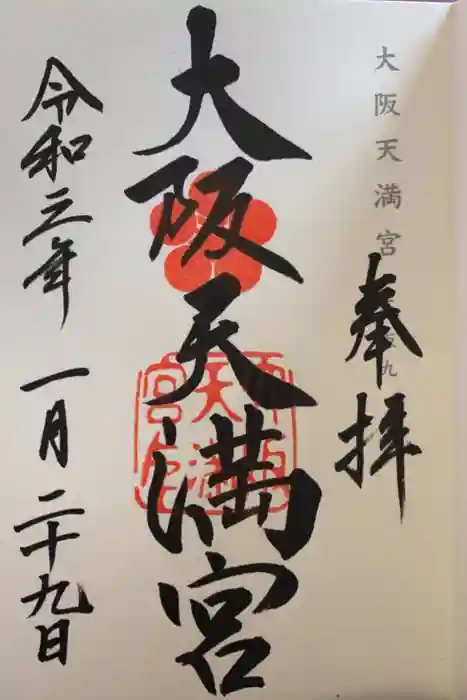 大阪天満宮
奉拝
大阪天満宮
令和三年一月二十九日